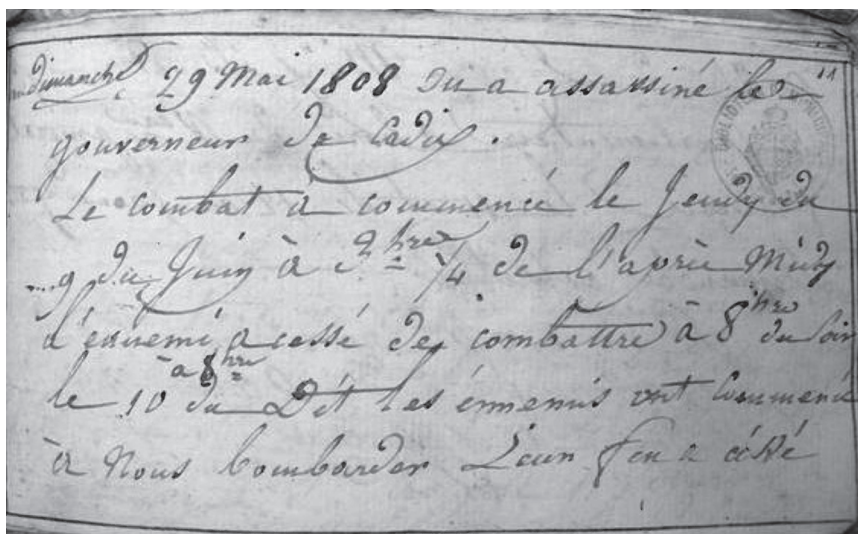 dimanche 29 Mai 1808 on a assassiné le 11
gouverneur de Cadix.
Le combat a commencé le Jeudy du
9 du Juin à 3 hres 1/4 de l'après Midy
L'ennemi a cessé de combattre à 8 hre du soir
à 8 hre
le 10 du Dit les énnemis ont Commencé
à Nous bombarder Leur feu a céssé